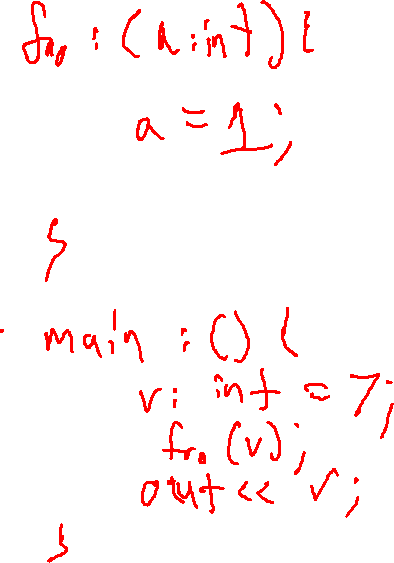 foo : (a:int) {
a = 1;
}
main : () {
v: int = 7;
foo (v);
out << v;
}